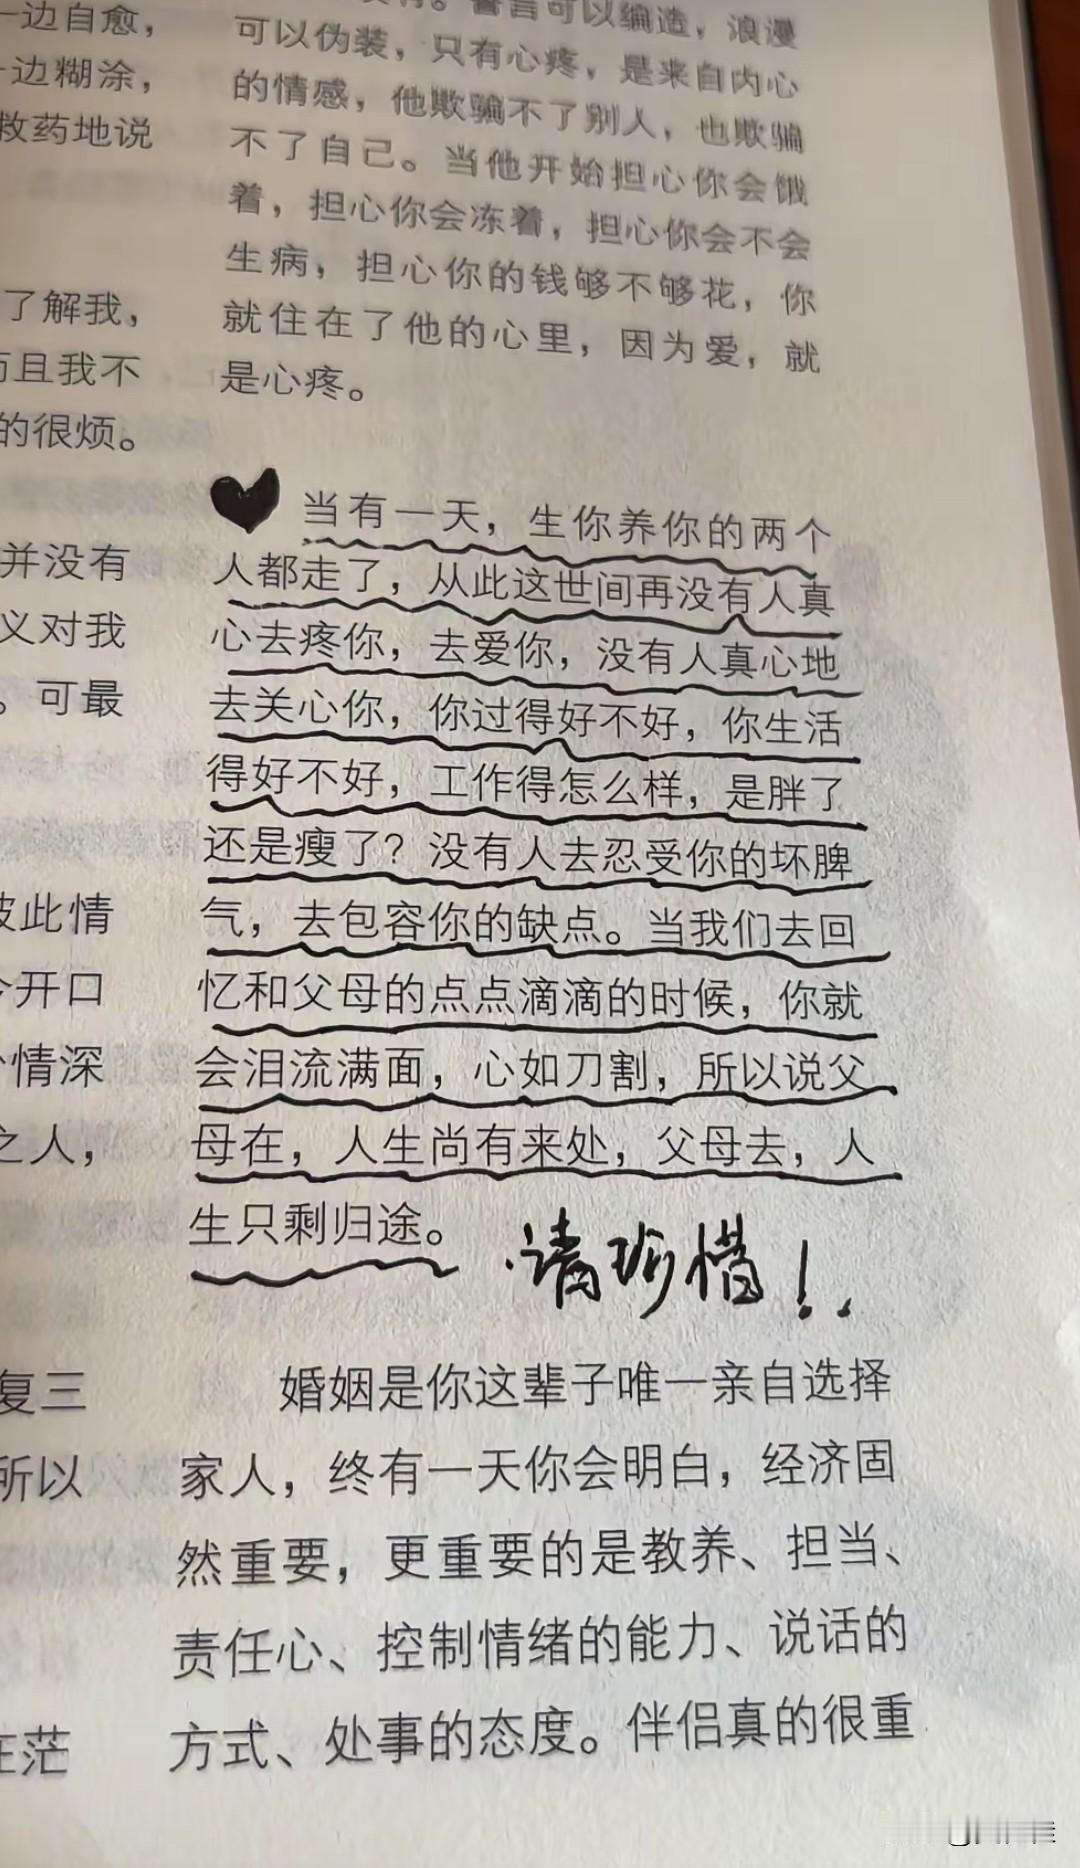 一边自愈，
一边糊涂，
救药地说
了解我，
而且我不
的很烦。
并没有
义对我
。可最
彼此情
开口
情深
之人，
复三
所以
在茫
誓言可以编造，浪漫
可以伪装，只有心疼，是来自内心
的情感，他欺骗不了别人，也欺骗
不了自己。当他开始担心你会饿
着，担心你会冻着，担心你会不会
生病，担心你的钱够不够花，你
就住在了他的心里，因为爱，就
是心疼。
当有一天，生你养你的两个
人都走了，从此这世间再没有人真
心去疼你，去爱你，没有人真心地
去关心你，你过得好不好，你生活
得好不好，工作得怎么样，是胖了
还是瘦了？没有人去忍受你的坏脾
气，去包容你的缺点。当我们去回
忆和父母的点点滴滴的时候，你就
会泪流满面，心如刀割，所以说父
母在，人生尚有来处，父母去，人
生只剩归途。
请珍惜！
婚姻是你这辈子唯一亲自选择
家人，终有一天你会明白，经济固
然重要，更重要的是教养、担当、
责任心、控制情绪的能力、说话的
方式、处事的态度。伴侣真的很重